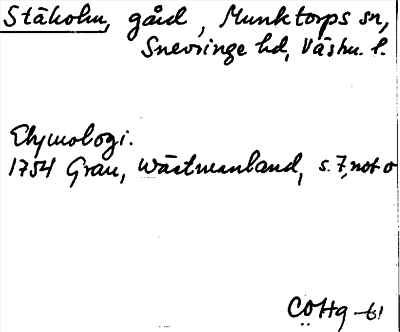 Stäholm, gård, Munktorps sn,
Snevringe hd, Västm. l.
Etymologi.
1754 Grau, Wästmanland, s. 7, not o
COHg -61